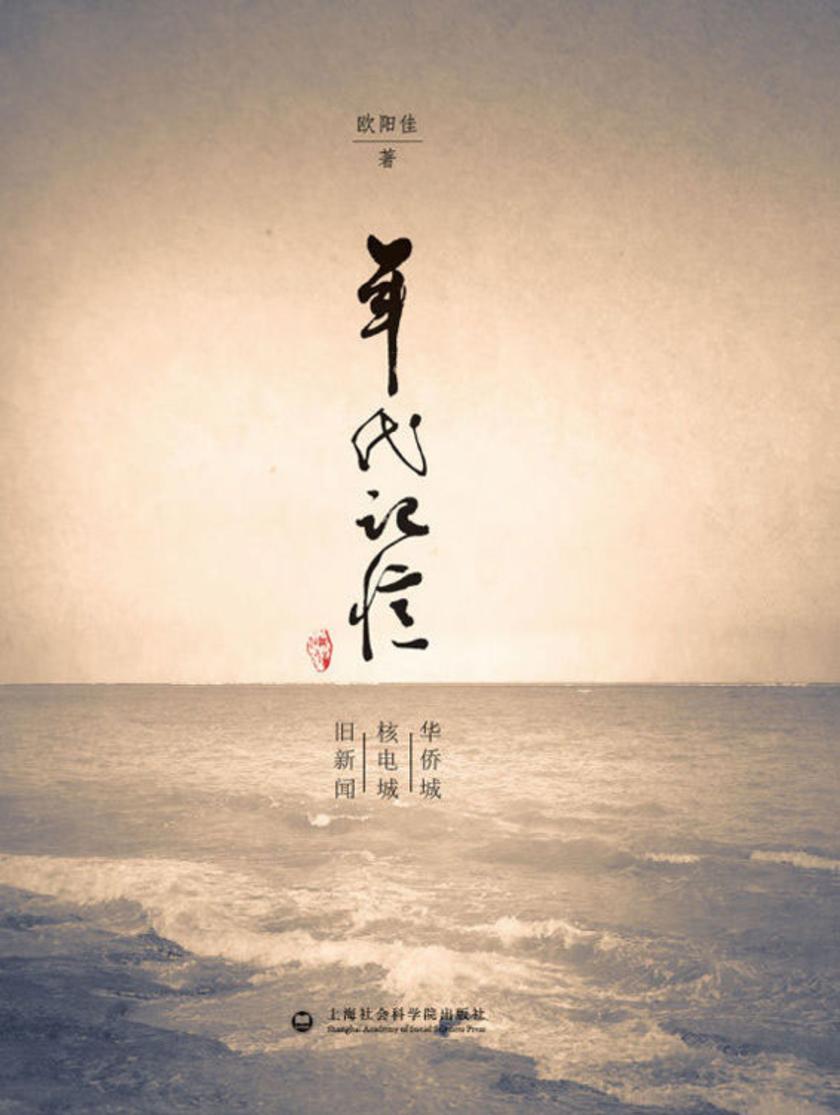 欧阳佳
著
年代记忆
华侨城
核电城
旧新闻
上海社会科学院出版社
Shanghai Academy of Social Sciences Press